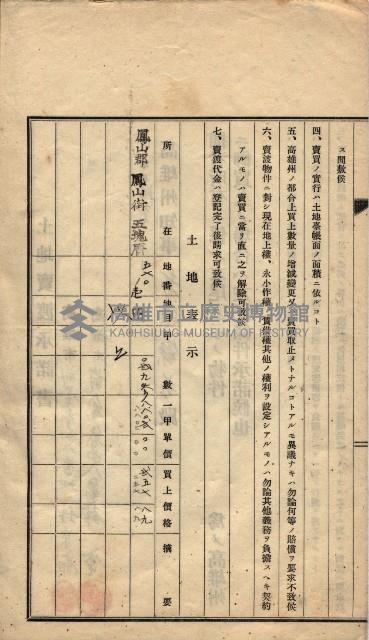 ス間敷候
四、賣買ノ實行ハ土地臺帳面ノ面積ニ依ルコト
五、高雄州ノ都合上買上數量ノ增減變更又ハ賣買取止メトナルコトアルモ異議ナキハ勿論何等ノ賠償ヲ要求不致候
六、賣渡物件ニ對シ現在地上權、永小作權、賃借權其他ノ權利ヲ設定シアルモノハ勿論其他義務ヲ負擔スヘキ契約
アルモノハ賣買ニ當リ直ニ之ヲ解除可致候
七、賣渡代金ハ登記完了後請求可致候
土地表示
所在地番地目甲數一甲單價買上價格摘要
鳳山郡鳳山街五塊厝
高雄市立歷史博物館
KAOHSIUNG MUSEUM OF HISTORY